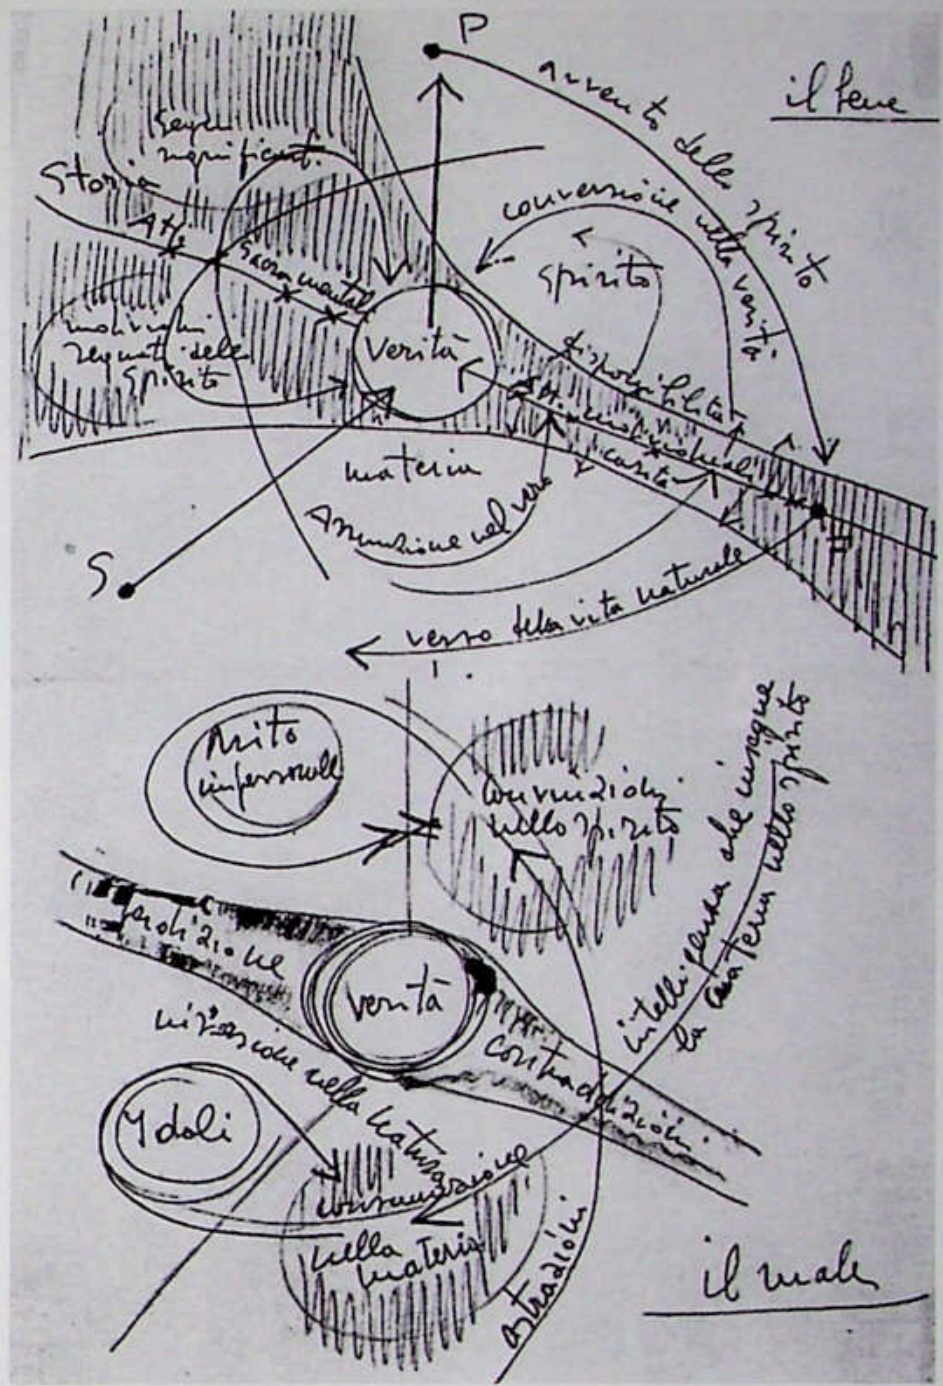 P
il bene
avvento dello spirito
conversione nella verità
spirito
segni
significant.
Storia
Atti
Sacramentali
motivazioni
segnate dello
spirito
Verità
disponibilità
Atti motivazionali
carità
materia
Assunzione nel vero
S
H
verso della vita naturale
Mito
impersonale
nello spirito
intelligenza che insegue
la materia nello spirito
perdizione
verità
contraddizioni
inversione nella natura
Ydoli
consumazione
nella
materia
astrazioni
il male